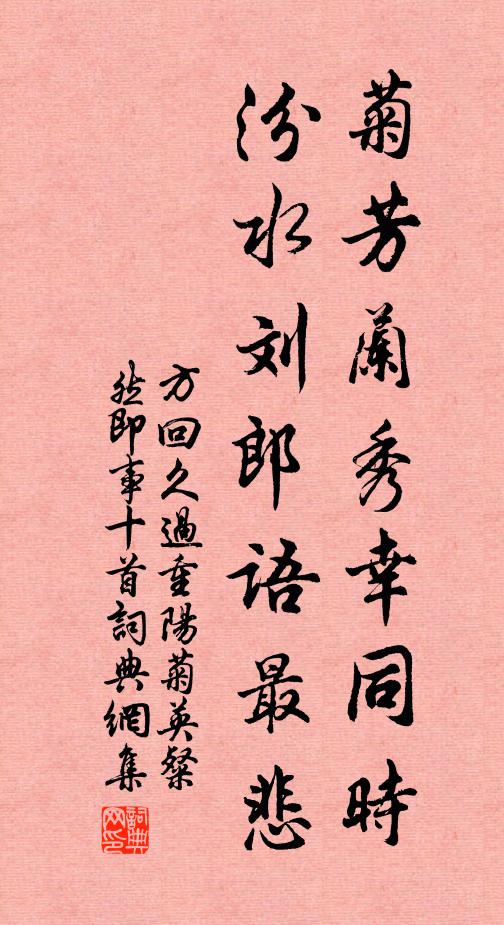 菊芳蘭秀幸同時
汾水刘郎語最悲
方回久過重陽菊英粲
然即事十首詞典網集
詞典网印